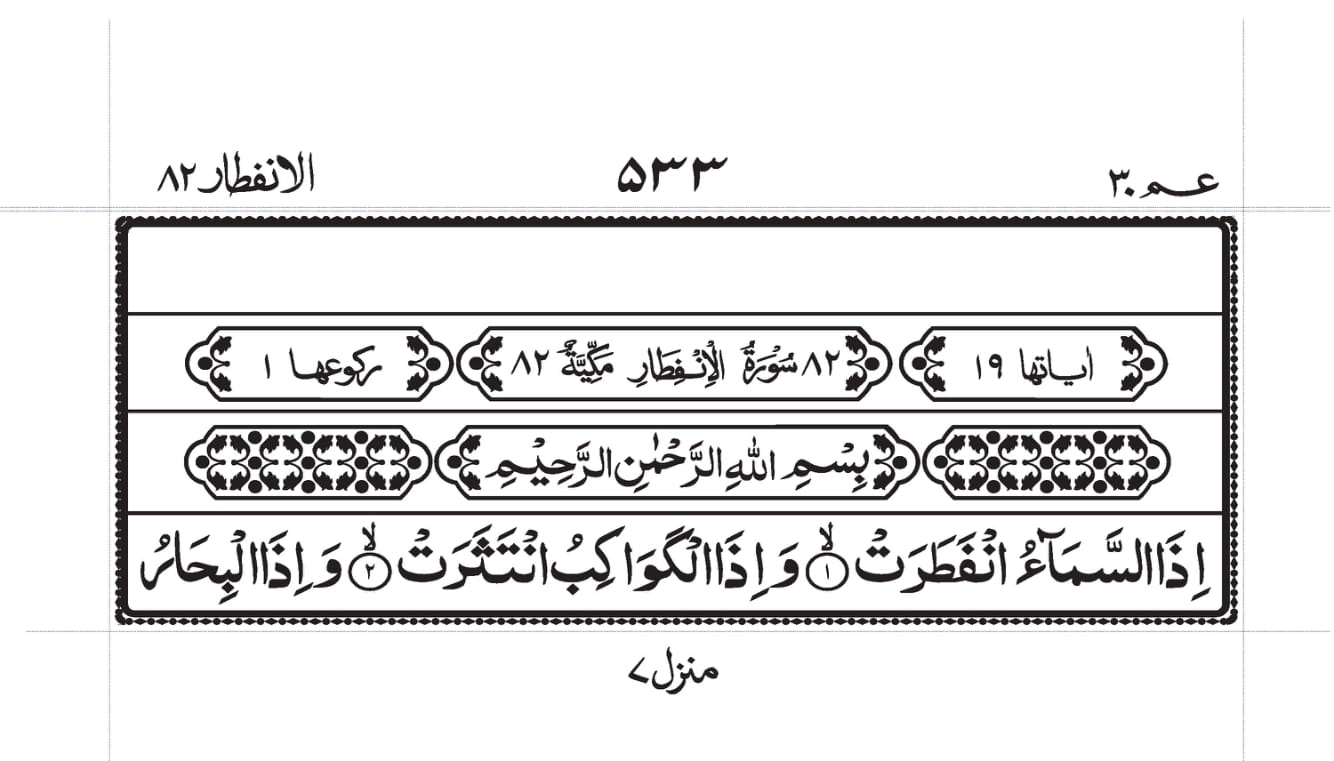 عم ٣٠ ۵۳۳ الانفطار ٨٢
اٰیاتها ١٩ ٨٢ سُوْرَةُ الْاِنْفِطَارِ مَكِّيَّةٌ ٨٢ ركوعها ١
بِسْمِ اللّٰهِ الرَّحْمٰنِ الرَّحِيْمِ
اِذَا السَّمَآءُ انْفَطَرَتْ ۙ﴿١﴾ وَ اِذَا الْكَوَاكِبُ انْتَثَرَتْ ۙ﴿٢﴾ وَ اِذَا الْبِحَارُ
منزل ٧